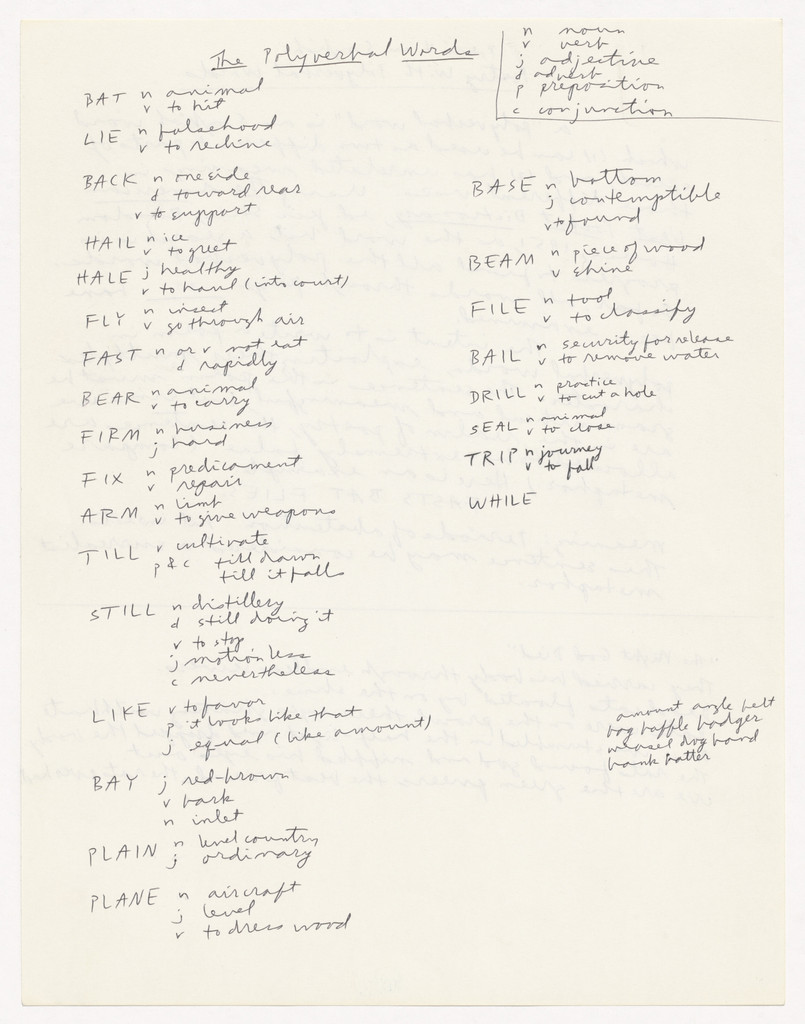 The Polyverbal Words
n noun
v verb
j adjective
d adverb
p preposition
c conjunction
BAT n animal
v to hit
LIE n falsehood
v to recline
BACK n one side
d toward rear
v to support
HAIL n ice
v to greet
HALE j healthy
v to haul (into court)
FLY n insect
v go through air
FAST n or v not eat
d rapidly
BEAR n animal
v to carry
FIRM n business
j hard
FIX n predicament
v repair
ARM n limb
v to give weapons
TILL v cultivate
p & c till dawn
till it falls
STILL n distillery
d still doing it
v to stop
j motionless
c nevertheless
LIKE v to favor
p it looks like that
j equal (like amount)
BAY j red-brown
v bark
n inlet
PLAIN n level country
j ordinary
PLANE n aircraft
j level
v to dress wood
BASE n bottom
j contemptible
v to found
BEAM n piece of wood
v shine
FILE n tool
v to classify
BAIL n security for release
v to remove water
DRILL n practice
v to cut a hole
SEAL n animal
v to close
TRIP n journey
v to fall
WHILE
amount angle belt
bog baffle badger
weasel dog band
bank batter